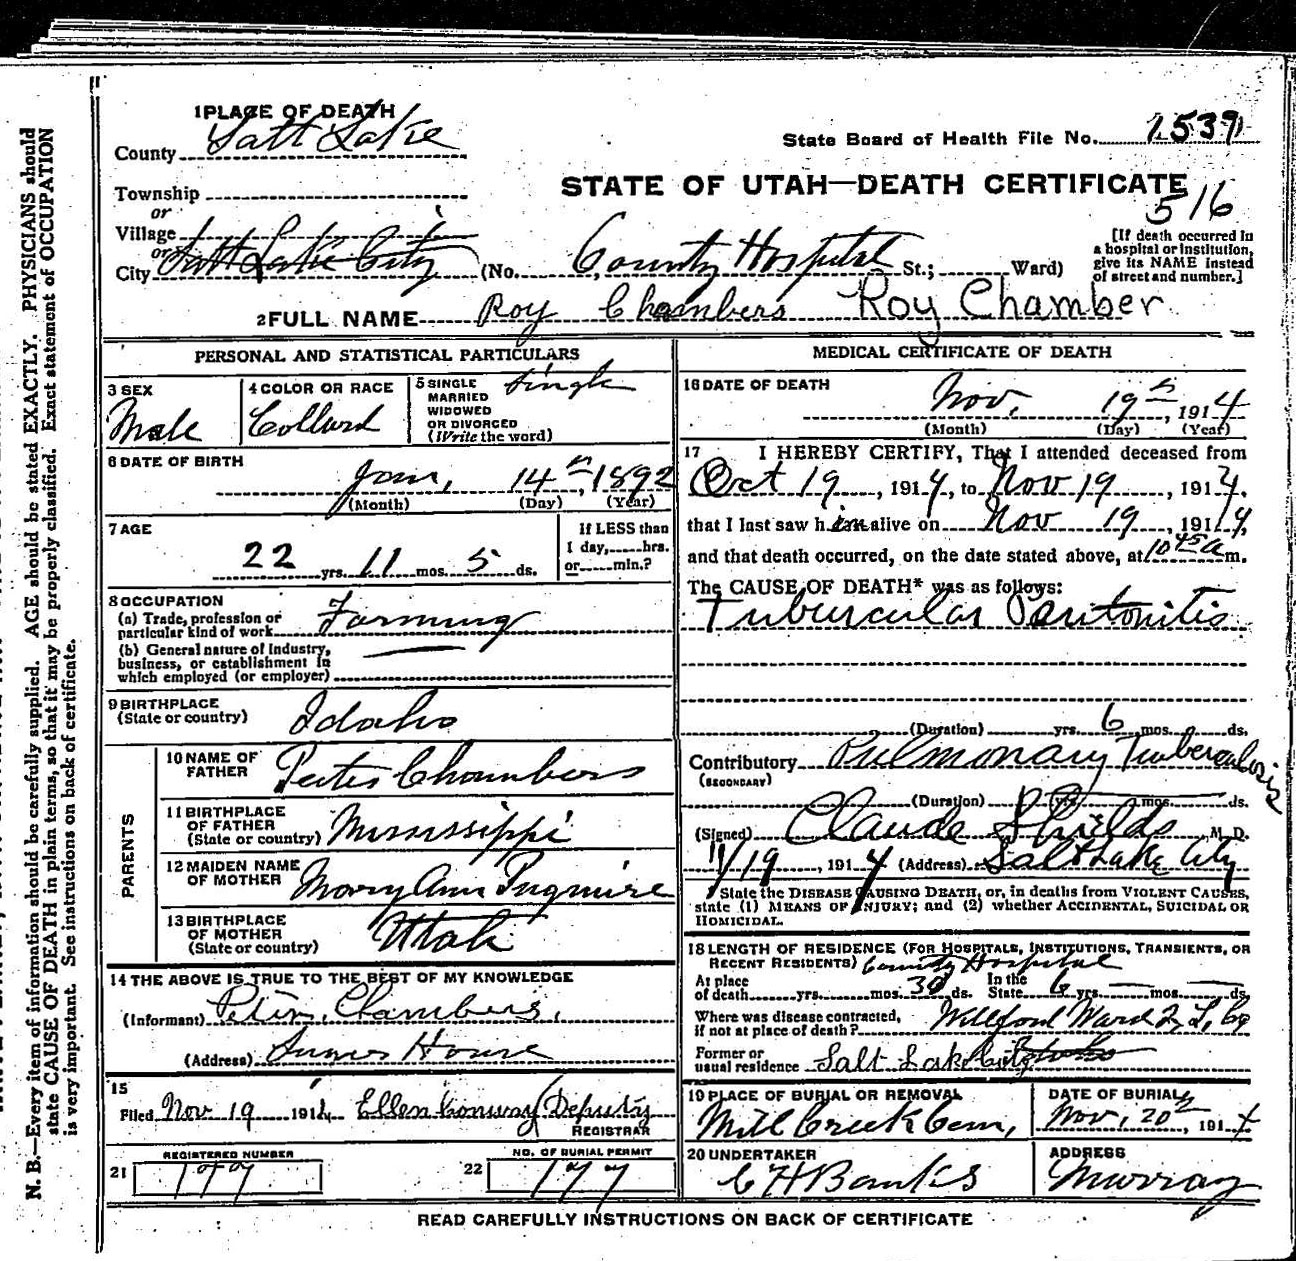 1 PLACE OF DEATH
County Salt Lake
State Board of Health File No. 1539
Township
or
Village
or
City Salt Lake City (No. County Hospital St.; Ward)
STATE OF UTAH—DEATH CERTIFICATE
516
[If death occurred in
a hospital or institution,
give its NAME instead
of street and number.]
2 FULL NAME Roy Chambers Roy Chamber
PERSONAL AND STATISTICAL PARTICULARS
3 SEX
Male
4 COLOR OR RACE
Collard
5 SINGLE
MARRIED
WIDOWED
OR DIVORCED
(Write the word)
Single
6 DATE OF BIRTH
Jan, 14th, 1892
(Month) (Day) (Year)
7 AGE
22 yrs. 11 mos. 5 ds.
If LESS than
1 day, hrs.
or min.?
8 OCCUPATION
(a) Trade, profession or
particular kind of work Farming
(b) General nature of Industry,
business, or establishment in
which employed (or employer)
9 BIRTHPLACE
(State or country) Idaho
PARENTS
10 NAME OF
FATHER Peter Chambers
11 BIRTHPLACE
OF FATHER
(State or country) Mississippi
12 MAIDEN NAME
OF MOTHER Mary Ann Pugmire
13 BIRTHPLACE
OF MOTHER
(State or country) Utah
14 THE ABOVE IS TRUE TO THE BEST OF MY KNOWLEDGE
(Informant) Peter Chambers,
(Address) House
15
Filed Nov 19 1914 Ellen Conway Deputy
REGISTRAR
21 REGISTERED NUMBER
177
22 NO. OF BURIAL PERMIT
177
MEDICAL CERTIFICATE OF DEATH
16 DATE OF DEATH
Nov. 19th, 1914
(Month) (Day) (Year)
17 I HEREBY CERTIFY, That I attended deceased from
Oct 19, 1914, to Nov 19, 1914,
that I last saw him alive on Nov 19, 1914,
and that death occurred, on the date stated above, at 10 45 a m.
The CAUSE OF DEATH* was as follows:
Tubercular Peritonitis
(Duration) yrs. 6 mos. ds.
Contributory Pulmonary Tuberculosis
(SECONDARY)
(Duration) yrs. mos. ds.
(Signed) Claude Shields M. D.
11/19, 1914 (Address) Salt Lake City
State the DISEASE CAUSING DEATH, or, in deaths from VIOLENT CAUSES,
state (1) MEANS OF INJURY; and (2) whether ACCIDENTAL, SUICIDAL OR
HOMICIDAL.
18 LENGTH OF RESIDENCE (FOR HOSPITALS, INSTITUTIONS, TRANSIENTS, OR
RECENT RESIDENTS) County Hospital
At place
of death yrs. mos. 30 ds.
In the
State 6 yrs. mos. ds.
Where was disease contracted,
if not at place of death? Ward
Former or
usual residence Salt Lake City
19 PLACE OF BURIAL OR REMOVAL
Mill Creek Cem,
DATE OF BURIAL
Nov, 20th, 1914
20 UNDERTAKER
C H Banks
ADDRESS
Murray
READ CAREFULLY INSTRUCTIONS ON BACK OF CERTIFICATE
N. B.—Every item of information should be carefully supplied. AGE should be stated EXACTLY. PHYSICIANS should
state CAUSE OF DEATH in plain terms, so that it may be properly classified. Exact statement of OCCUPATION
is very important. See instructions on back of certificate.